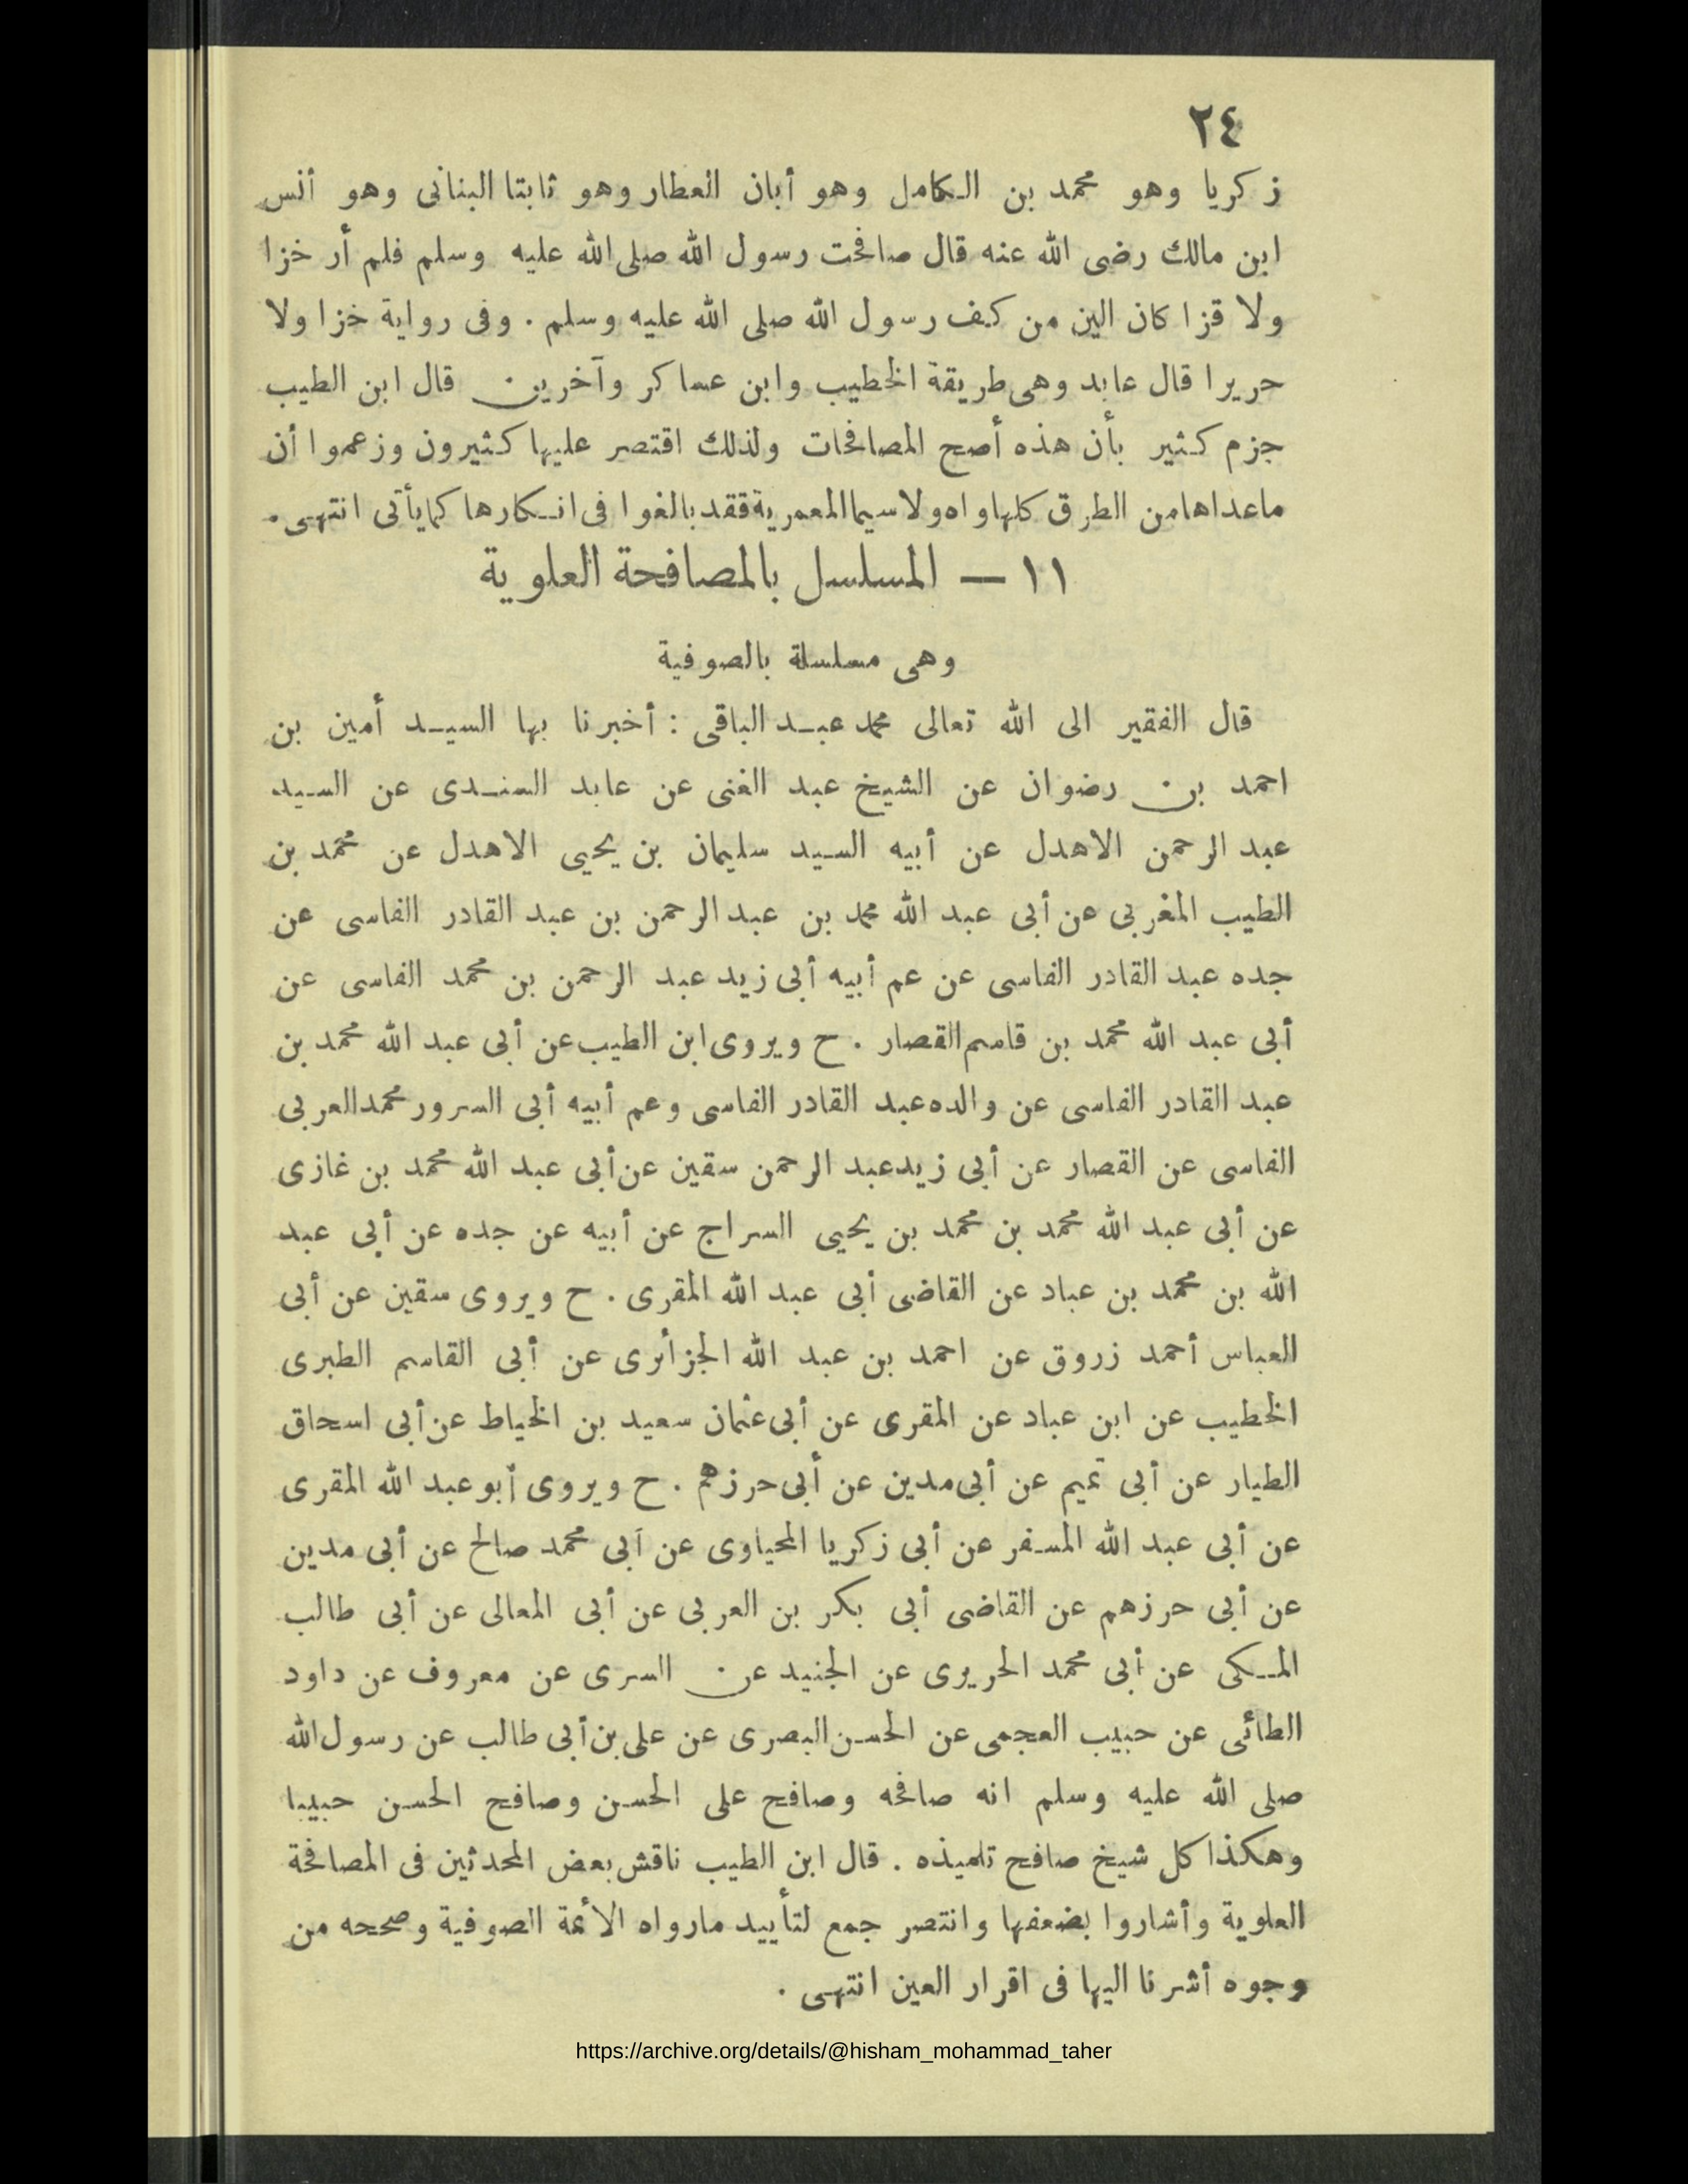 ٢٤
زكريا وهو محمد بن الكامل وهو أبان العطار وهو ثابتا البنانى وهو أنس
ابن مالك رضى الله عنه قال صافحت رسول الله صلى الله عليه وسلم فلم أر خزا
ولا قزا كان الين من كف رسول الله صلى الله عليه وسلم . وفى رواية خزا ولا
حريرا قال عابد وهى طريقة الخطيب وابن عساكر وآخرين قال ابن الطيب
جزم كثير بأن هذه أصح المصافحات ولذلك اقتصر عليها كثيرون وزعموا أن
ماعداها من الطرق كلها واه ولا سيما المعمرية فقد بالغوا فى انكارها كما يأتى انتهى .
١١ — المسلسل بالمصافحة العلوية
وهى مسلسلة بالصوفية
قال الفقير الى الله تعالى محمد عبد الباقى : أخبرنا بها السيد أمين بن
احمد بن رضوان عن الشيخ عبد الغنى عن عابد السندى عن السيد
عبد الرحمن الاهدل عن أبيه السيد سليمان بن يحيى الاهدل عن محمد بن
الطيب المغربى عن أبى عبد الله محمد بن عبد الرحمن بن عبد القادر الفاسى عن
جده عبد القادر الفاسى عن عم أبيه أبى زيد عبد الرحمن بن محمد الفاسى عن
أبى عبد الله محمد بن قاسم القصار . ح ويروى ابن الطيب عن أبى عبد الله محمد بن
عبد القادر الفاسى عن والده عبد القادر الفاسى وعم أبيه أبى السرور محمد العربى
الفاسى عن القصار عن أبى زيد عبد الرحمن سقين عن أبى عبد الله محمد بن غازى
عن أبى عبد الله محمد بن محمد بن يحيى السراج عن أبيه عن جده عن أبى عبد
الله بن محمد بن عباد عن القاضى أبى عبد الله المقرى . ح ويروى سقين عن أبى
العباس أحمد زروق عن احمد بن عبد الله الجزائرى عن أبى القاسم الطبرى
الخطيب عن ابن عباد عن المقرى عن أبى عثمان سعيد بن الخياط عن أبى اسحاق
الطيار عن أبى تميم عن أبى مدين عن أبى حرزهم . ح ويروى أبو عبد الله المقرى
عن أبى عبد الله المسفر عن أبى زكريا المحياوى عن أبى محمد صالح عن أبى مدين
عن أبى حرزهم عن القاضى أبى بكر بن العربى عن أبى المعالى عن أبى طالب
المكى عن أبى محمد الحريرى عن الجنيد عن السرى عن معروف عن داود
الطائى عن حبيب العجمى عن الحسن البصرى عن على بن أبى طالب عن رسول الله
صلى الله عليه وسلم انه صافحه وصافح على الحسن وصافح الحسن حبيبا
وهكذا كل شيخ صافح تلميذه . قال ابن الطيب ناقش بعض المحدثين فى المصافحة
العلوية وأشاروا بضعفها وانتصر جمع لتأييد مارواه الأئمة الصوفية وصححه من
وجوه أشرنا اليها فى اقرار العين انتهى .
https://archive.org/details/@hisham_mohammad_taher